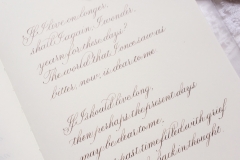 If I live on longer
shall I again, I wonder,
yearn for these days?
The world that I once saw as
bitter, now, is dear to me.
If I should live long,
then perhaps the present days
may be dear to me,
past time filled with grief
back in thought.